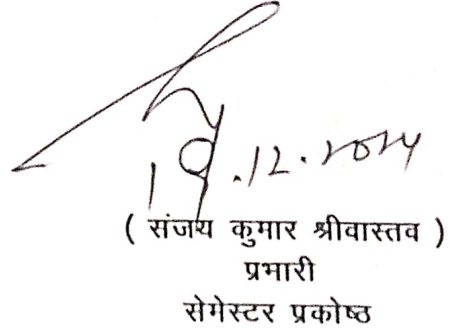 .12.2024
( संजय कुमार श्रीवास्तव )
प्रभारी
सेमेस्टर प्रकोष्ठ